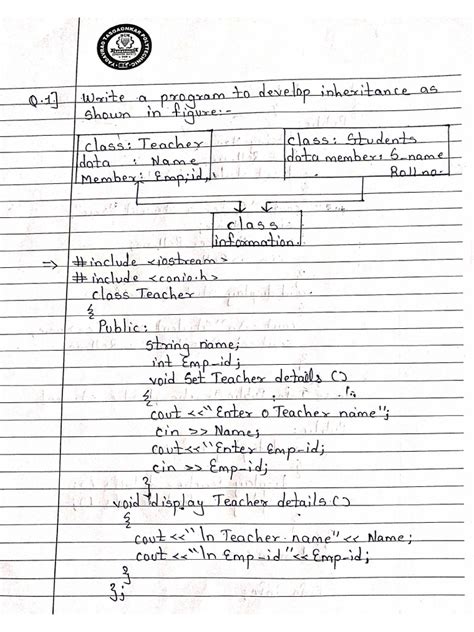 YADAVRAO TASGAONKAR POLYTECHNIC
Q.1] Write a program to develop inheritance as
shown in figure:-
class: Teacher
data : Name
Member: Emp;id,
class: Students
data member: S_name
Roll no.
class
information.
→ #include <iostream>
#include <conio.h>
class Teacher
{
Public:
string name;
int Emp-id;
void Set Teacher details ()
{
cout <<"Enter o Teacher name";
cin >> Name;
cout<<"Enter Emp-id;
cin >> Emp-id;
}
void display Teacher details ()
{
cout <<"ln Teacher name"<< Name;
cout <<"ln Emp-id"<< Emp-id;
}
};